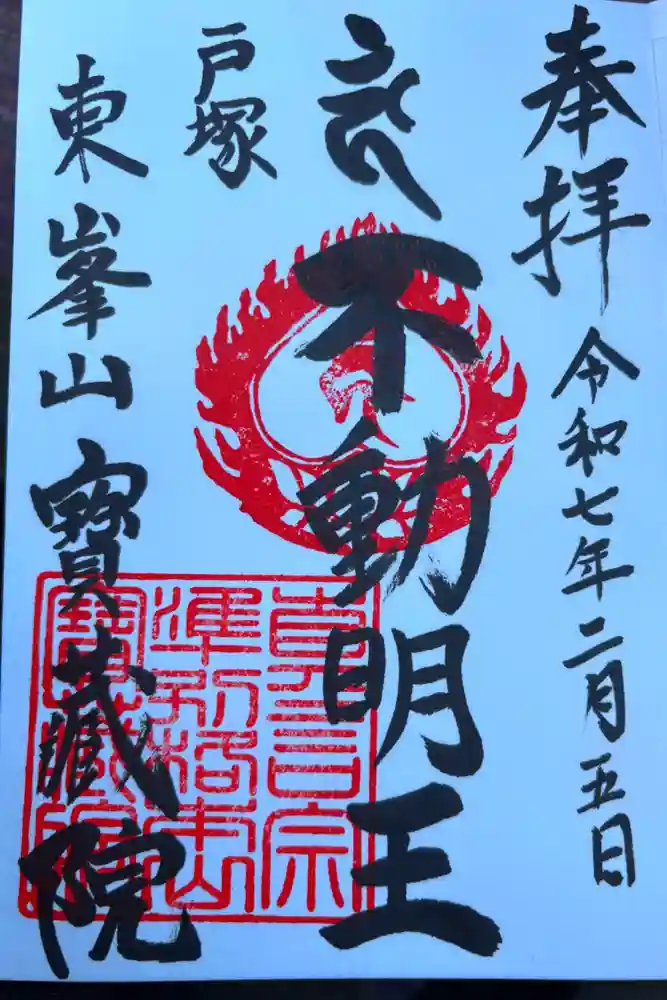 奉拝
令和七年二月五日
不動明王
戸塚
東峯山寶蔵院
真言宗
準別格本山
寶蔵院